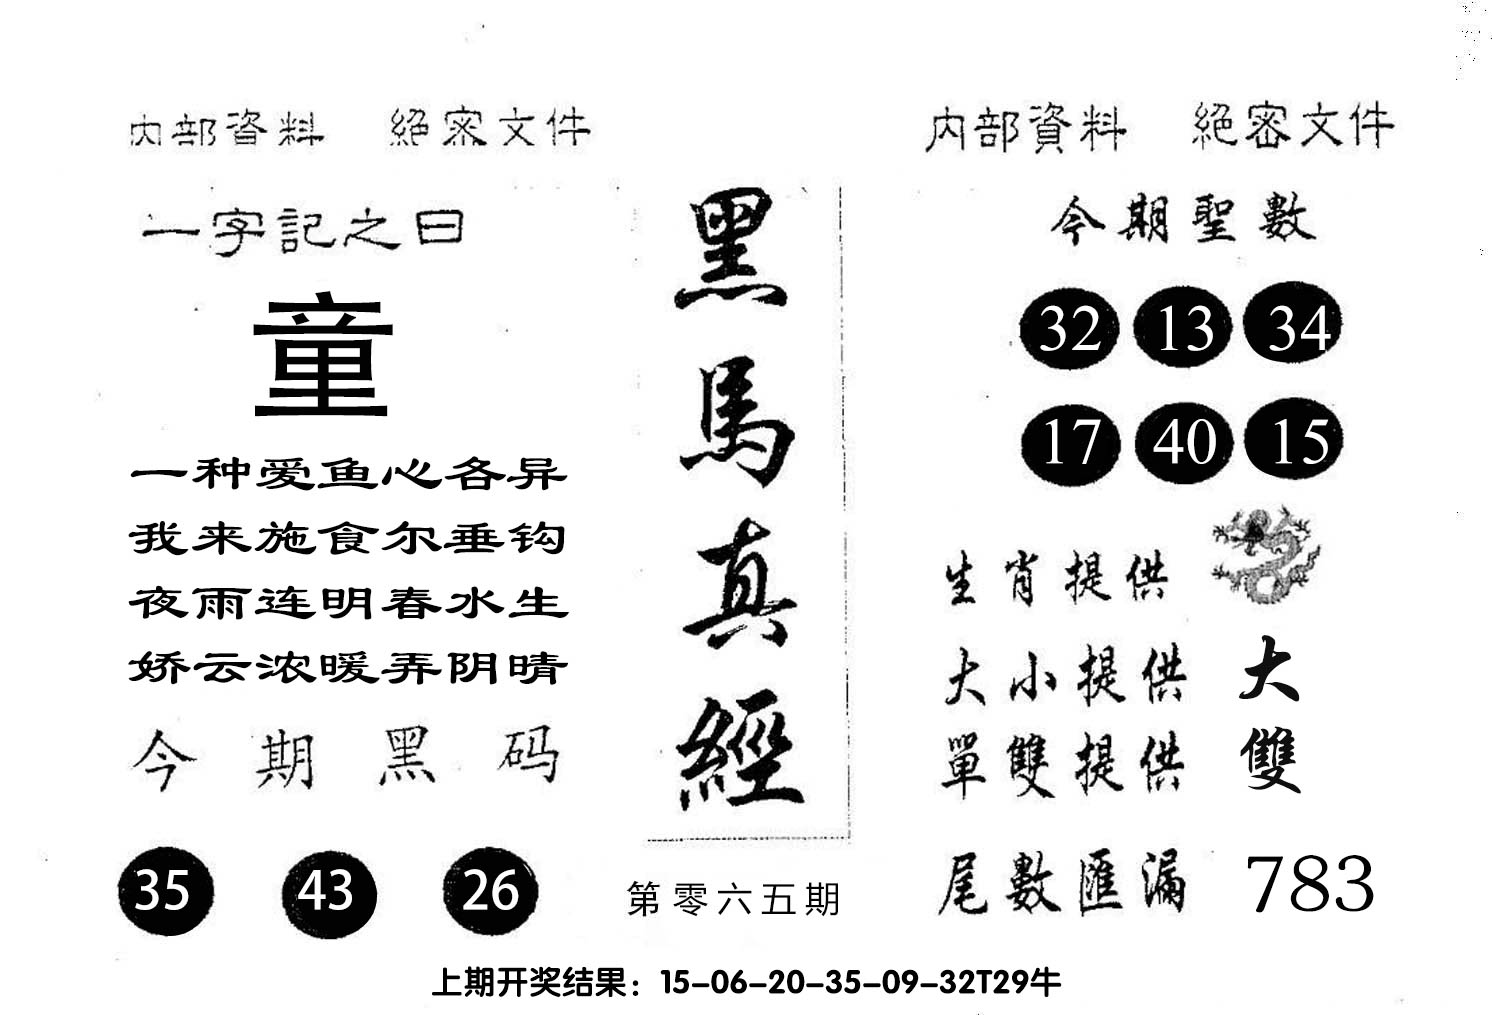 内部資料 絕密文件
一字記之曰
童
一种爱鱼心各异
我来施食尔垂钩
夜雨连明春水生
娇云浓暖弄阴晴
今期黑码
35 43 26
黑馬真經
第零六五期
内部資料 絕密文件
今期聖數
32 13 34
17 40 15
生肖提供
大小提供 大
單雙提供 雙
尾數匯漏 783
上期开奖结果：15-06-20-35-09-32T29牛